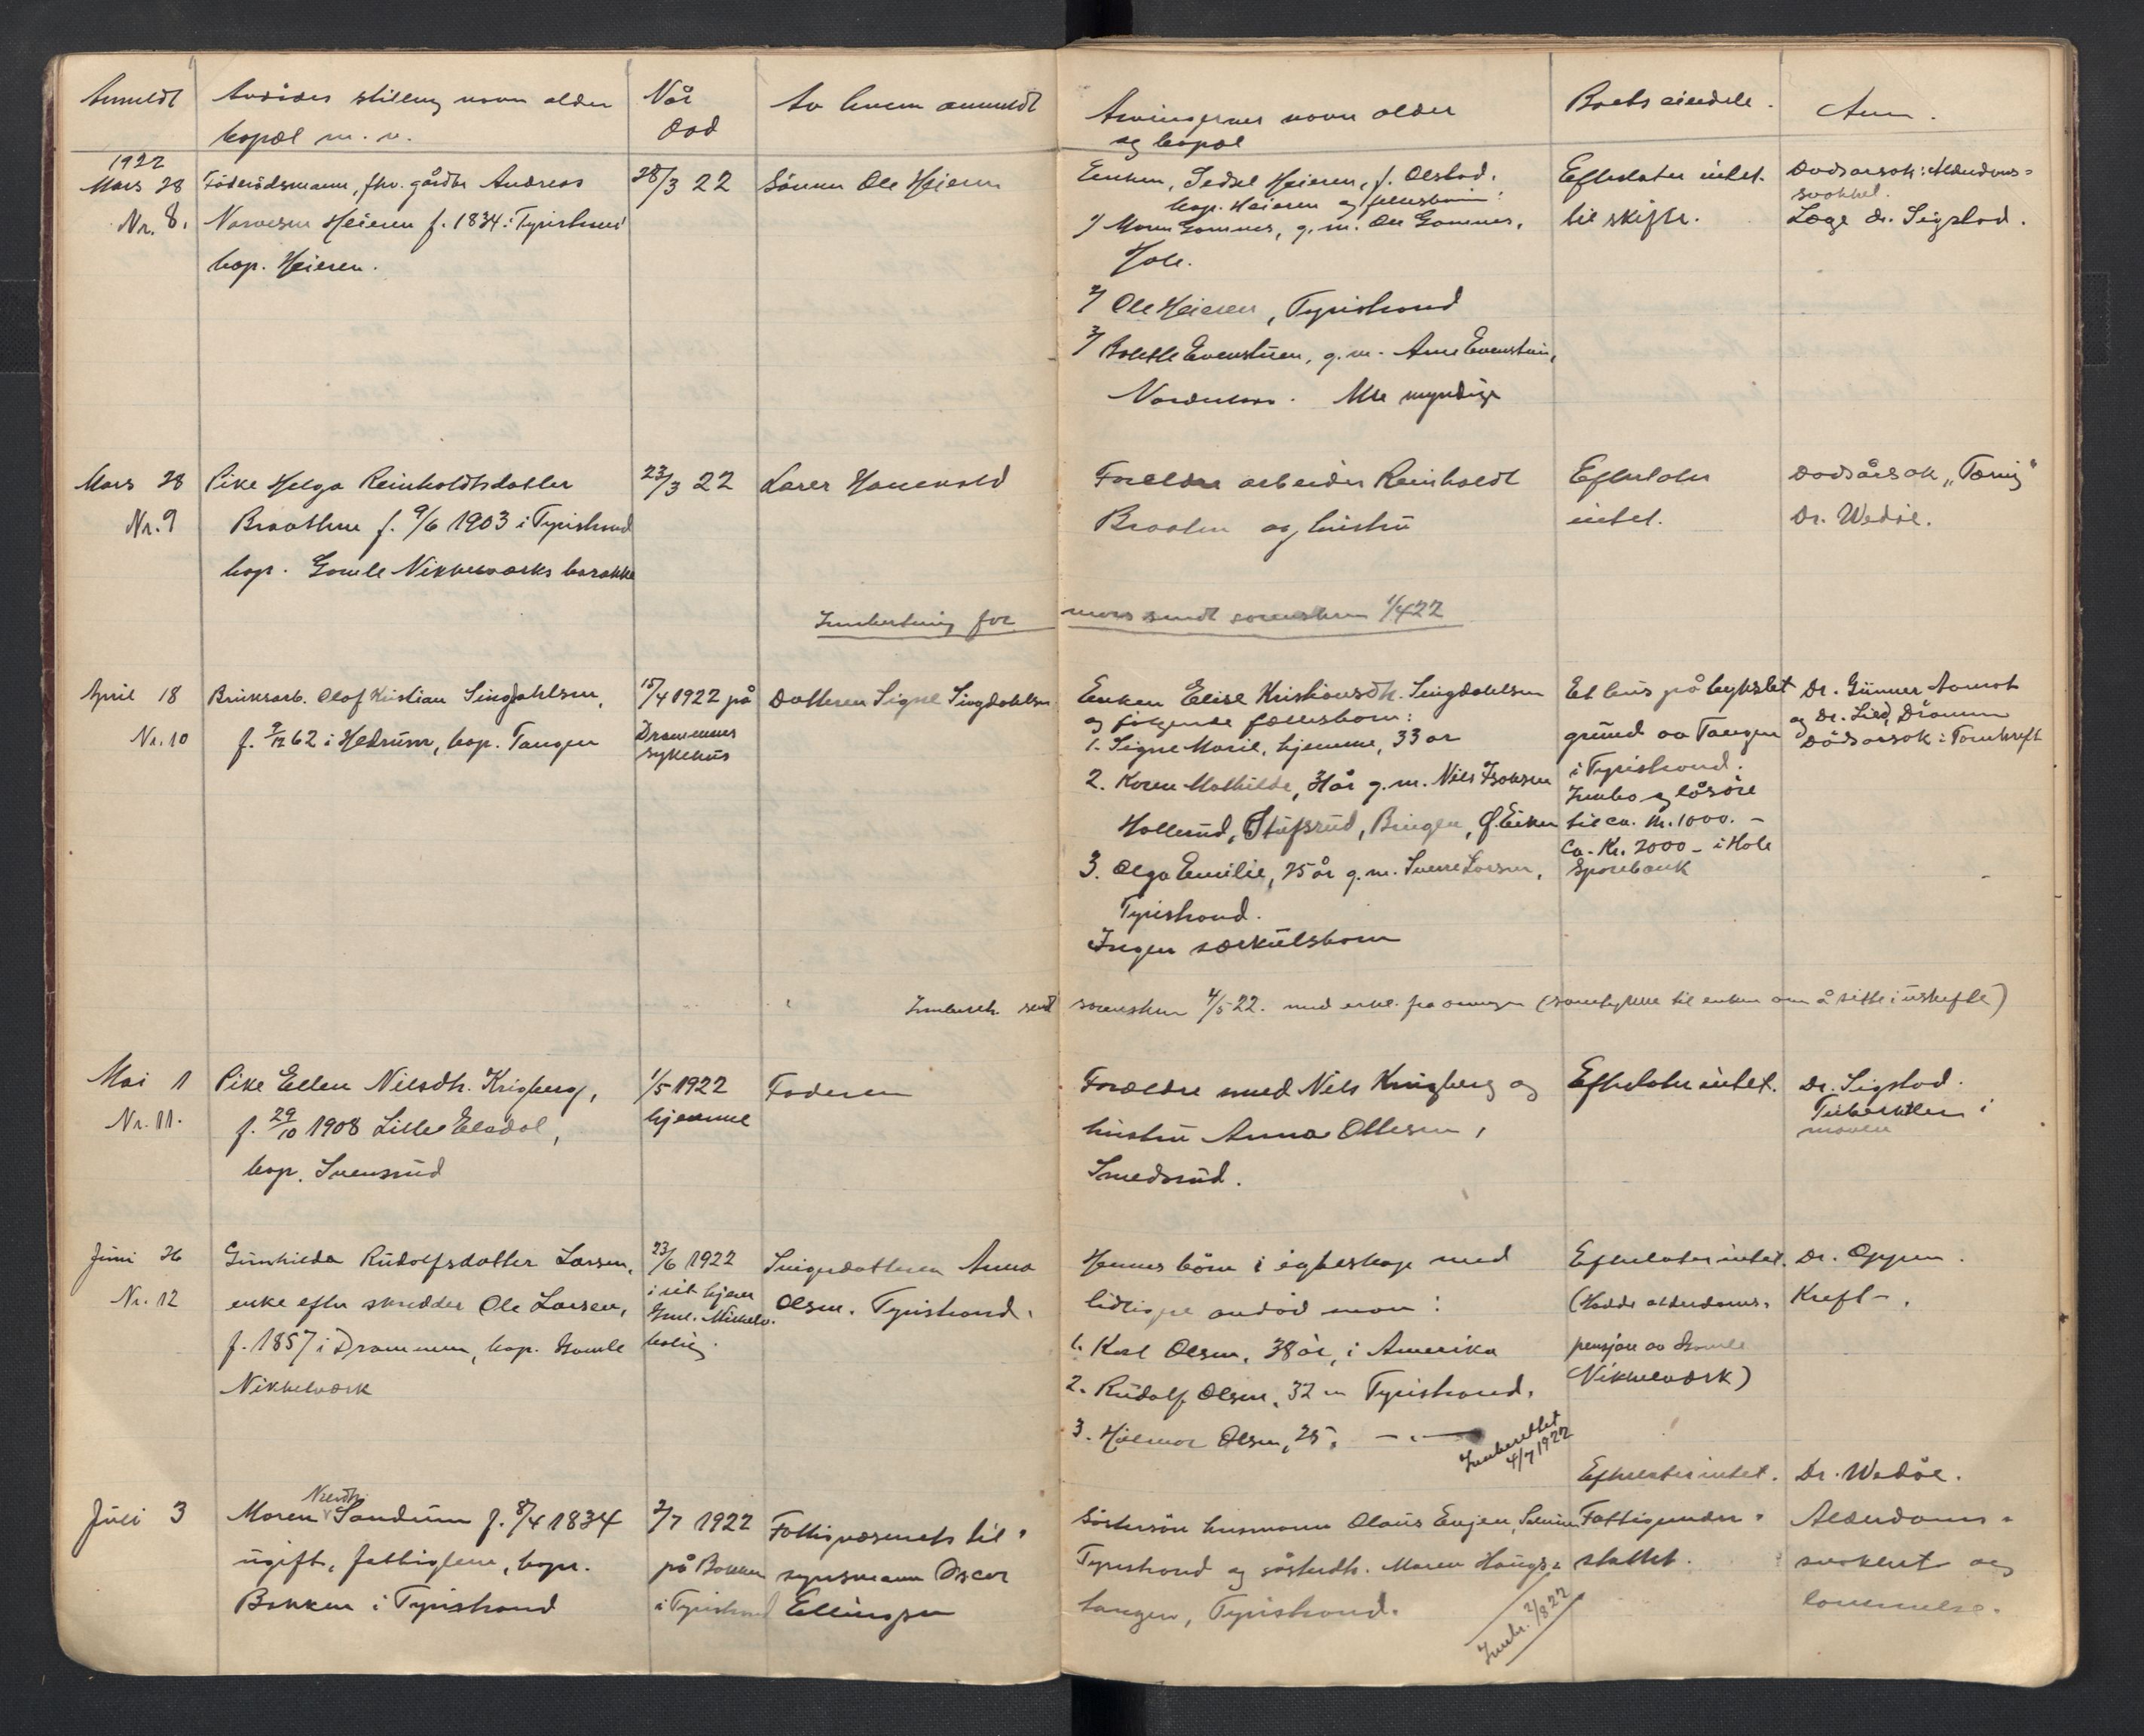 Anmeldt
Avdødes stilling navn alder
bopæl m. v.
Når
død
Av hvem anmeldt
Arvingernes navn alder
og bopæl
Boets eiendele.
Anm.
1922
Mars 28
Nr. 8.
Föderådsmann, fhv. gårdbr Andreas
Heieren f. 1834 i Tyristrand
bop. Heieren.
28/3 22
Sönnen Ole Heieren
Enken, Sedsel Heieren, f. Olstad.
bop. Heieren og fællesbarn:
1/ Maren Gomnes, g. m. Ole Gomnes,
Hole.
2/ Ole Heieren, Tyristrand
3/ Bolette Evenstuen, g. m. Arne Evenstuen,
Alle myndige
Efterlater intet
til skifte.
Dødsarsak: Alderdoms-
svakhet.
Læge dr. Sigstad.
Mars 28
Nr. 9
Pike Helga Reinholdtsdatter
Braathen f. 9/6 1903 i Tyristrand
bop. Gamle Nikkelværks barakke
23/3 22
Lars
Foreldre arbeider Reinholdt
Braaten og hustru
Efterlater
intet.
Dødsårsak „Tæring“
Dr. Wedöe.
Innberetning for
mars sendt sorenskr. 1/4 22
April 18
Nr. 10
Bruksarb. Olaf Kristian Singdahlsen,
f. 9/12 62 i Hedrum, bop. Tangen
15/4 1922 på
Drammens
sykehus
Datteren Signe Singdahlsen
Enken Elise Kristiansdtr. Singdahlsen
og følgende fællesbarn:
1. Signe Marie, hjemme, 33 år
2. Karen Mathilde, 31 år g. m. Nils Isaksen
Hollerud, Stufsrud, Bingen, Ø. Eiker
3. Olga Emilie, 25 år g. m. Sverre Larsen,
Tyristrand.
Ingen særkulsbarn
Et hus på bykslet
grund av Tangen
i Tyristrand.
Innbo og løsøre
til ca. kr. 1000.-
Ca. Kr. 2000- i Hole
Sparebank
Dr. Gunner Aamot
og Dr. Lied, Drammen
Dödsarsak: Tarmkreft
Innberetn. sendt
sorenskr. 4/5 22. med erkl. fra arvingen (samtykke til enken om å sitte i uskifte)
Mai 1
Nr. 11.
Pike Ellen Nilsdtr. Krigberg,
f. 29/10 1908 Lille Elvdal,
bop. Svensrud
1/5 1922
hjemme
Faderen
Forældre Nils Krigberg og
hustru Anna Ottesen,
Smedsrud.
Efterlater intet.
Dr. Sigstad.
Tuberkler i
maven
Juni 26
Nr. 12
Gunhilda Rudolfsdatter Larsen,
enke efter skredder Ole Larsen,
f. 1857 i Drammen, bop. Gamle
Nikkelværk
23/6 1922
i sit hjem
Gml. Nikkelv.
bolig.
Svigerdatteren Anna
Olsen. Tyristrand.
Hennes börn i egteskap med
tidligere avdöd man:
1. Karl Olsen, 38 år, i Amerika
2. Rudolf Olsen, 32 " Tyristrand.
3. Hilmar Olsen, 25, — " —
Innberettet
4/7 1922
Efterlater intet.
(Hadde alderdoms-
pensjon av Gamle
Nikkelværk)
Dr. Oppen.
Kreft.
Juli 3
Nilsdtr.
Maren Sandum f. 8/4 1834
ugift, fattiglem, bop.
Bakken i Tyristrand
2/7 1922
på Bakken
i Tyristrand
Fattigvæsenets til-
synsmann Oscar
Ellingsen
Söstersön husmann Olaus Engen,
Tyristrand og sösterdtr. Maren Haugs-
tangen, Tyristrand.
Innb. 2/8 22
Efterlater intet.
Fattigunder-
støttet.
Dr. Wedöe.
Alderdoms-
svakhet og
lammelse.